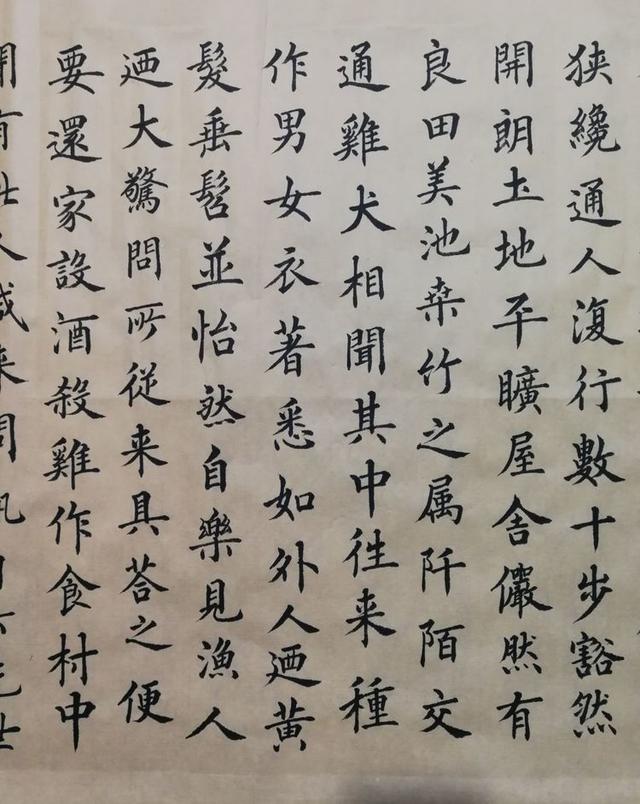 狭纔通人復行數十步豁然
開朗土地平曠屋舍儼然有
良田美池桒竹之属阡陌交
通雞犬相聞其中徃来種
作男女衣著悉如外人迺黄
髮垂髫並怡然自樂見漁人
迺大驚問所従来具荅之便
要還家設酒殺雞作食村中
有此人咸来問